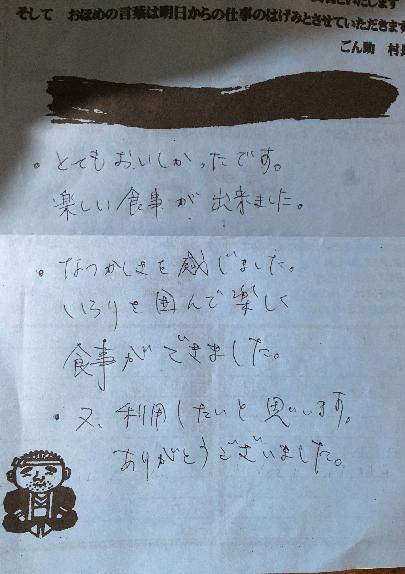 そして　おほめの言葉は明日からの仕事のはげみとさせていただきます
ごん助　村長
・とてもおいしかったです。
楽しい食事が出来ました。
・なつかしさを感じました。
いろりを囲んで楽しく
食事ができました。
・又、利用したいと思います。
ありがとうございました。